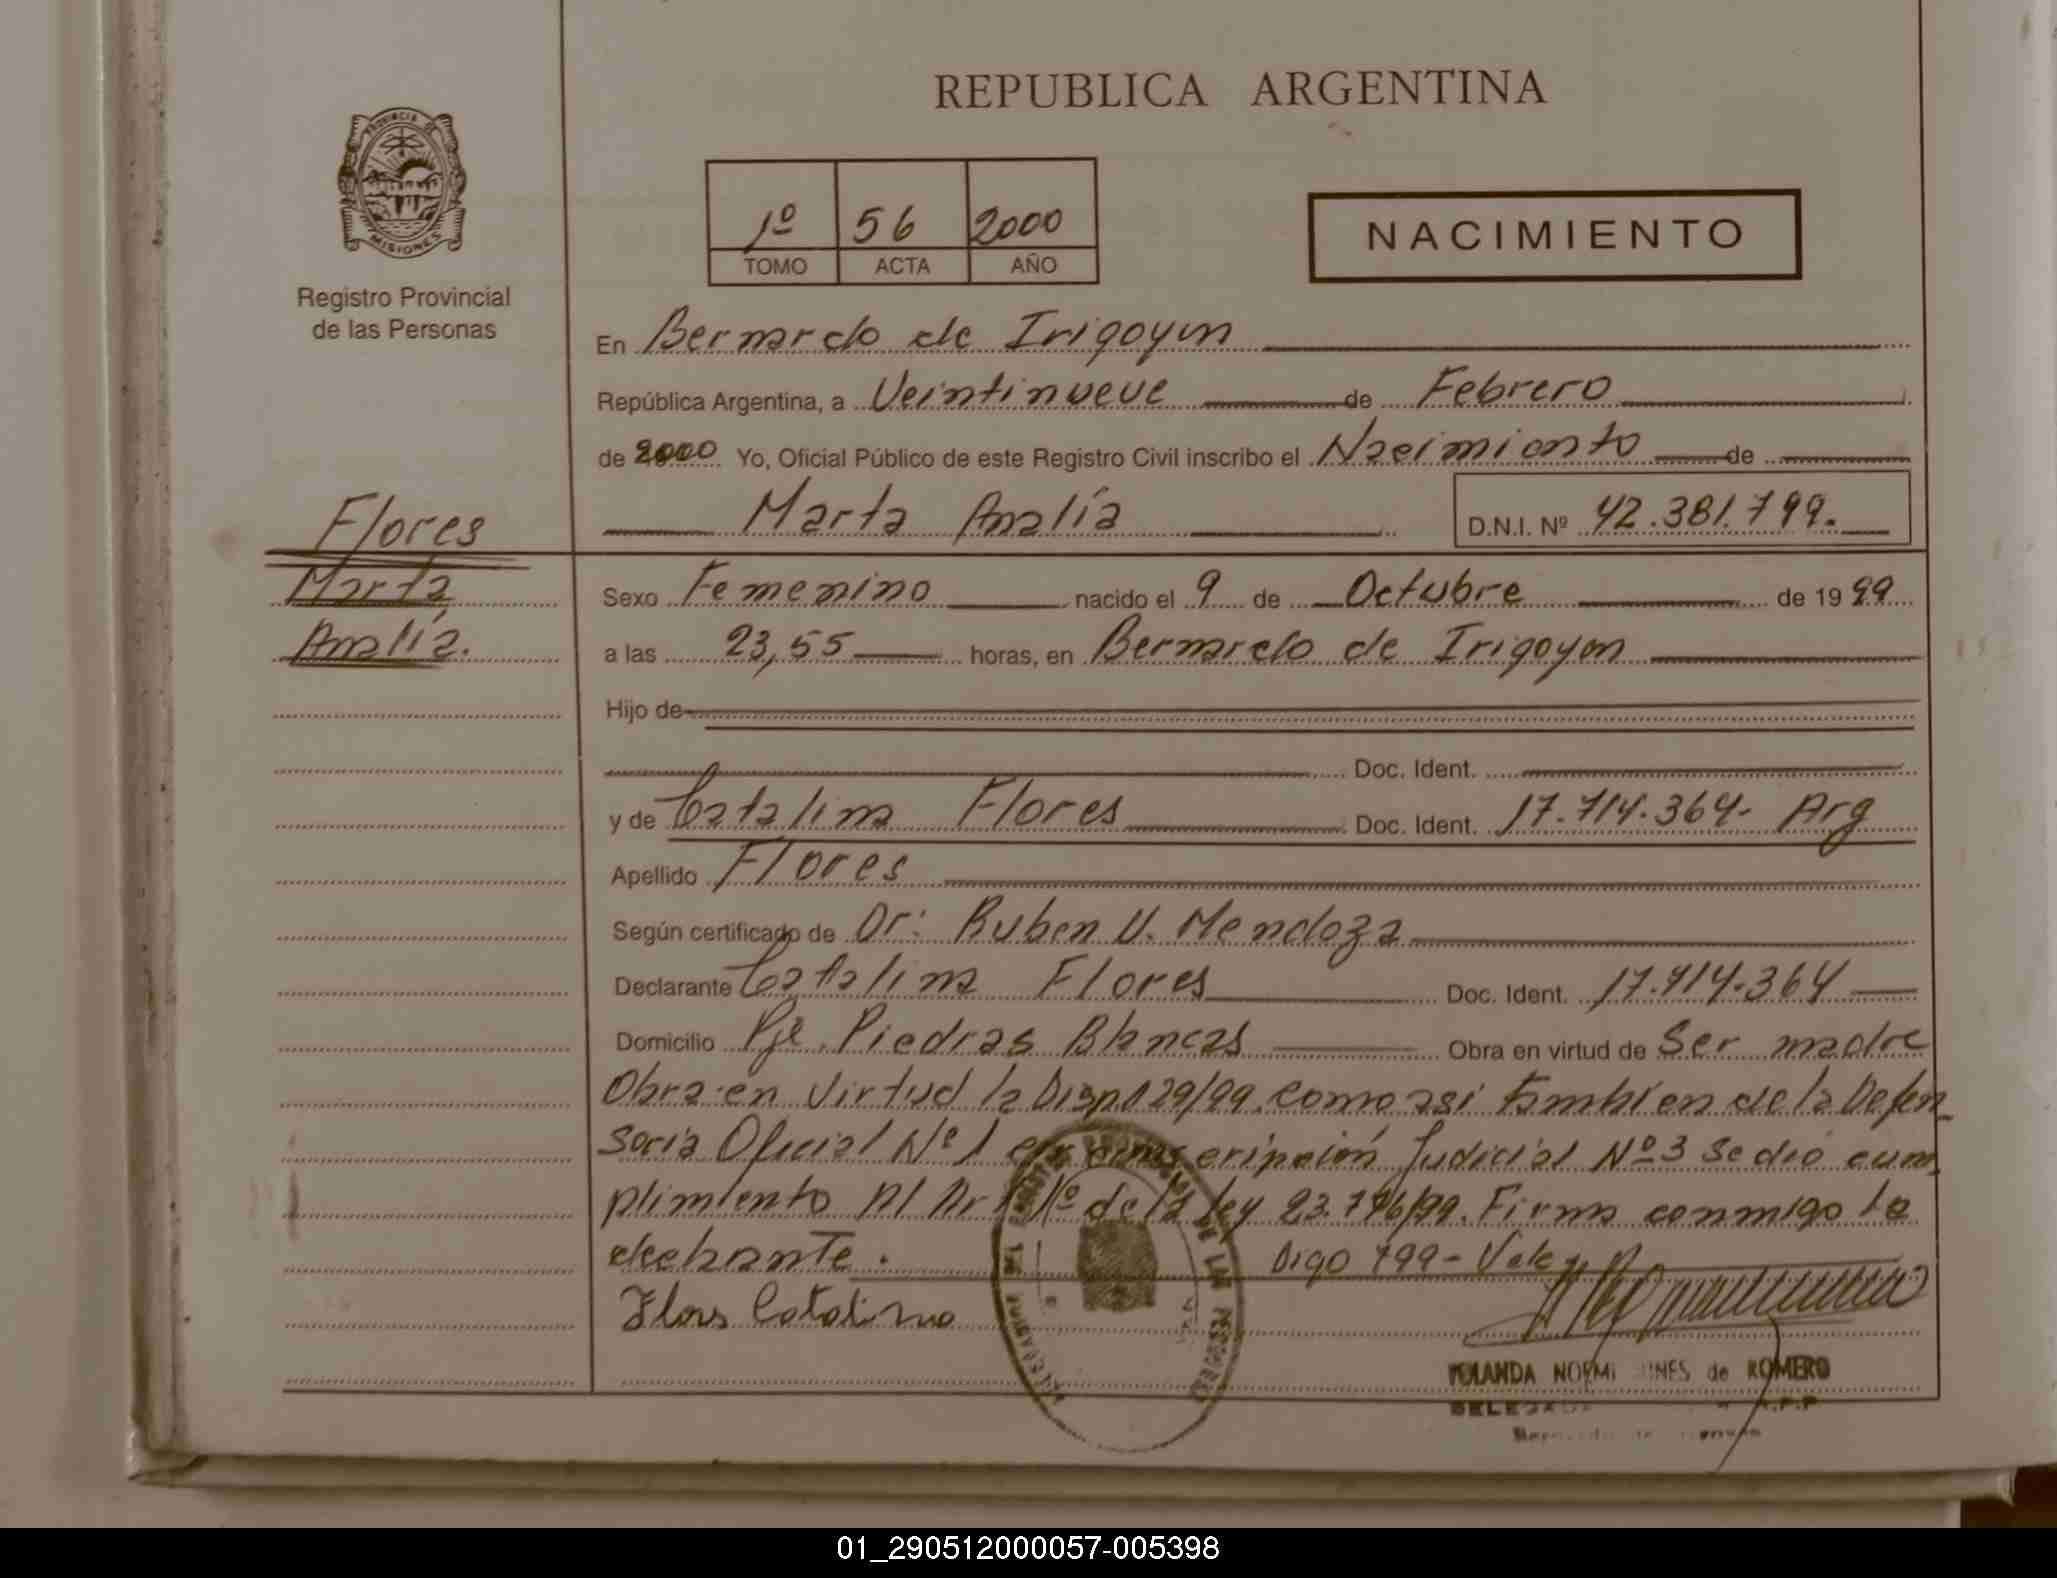 REPUBLICA ARGENTINA
PROVINCIA DE
MISIONES
Registro Provincial
de las Personas
1º 56 2000
TOMO ACTA AÑO
NACIMIENTO
En Bernardo de Irigoyen
República Argentina, a Veintinueve de Febrero
de 2000 Yo, Oficial Público de este Registro Civil inscribo el Nacimiento de
Marta Analía D.N.I. Nº 42.381.799.
Flores
Marta
Analía.
Sexo Femenino nacido el 9 de Octubre de 1999
a las 23,55 horas, en Bernardo de Irigoyen
Hijo de
Doc. Ident.
y de Catalina Flores Doc. Ident. 17.714.364- Arg
Apellido Flores
Según certificado de Dr: Ruben V. Mendoza
Declarante Catalina Flores Doc. Ident. 17.714.364
Domicilio Pje. Piedras Blancas Obra en virtud de Ser madre
Obra en Virtud la 29/99. Como asi tambien de la Defen-
soria Oficial Nº 1 Judicial Nº 3 se dió cum-
plimiento Al Art 1º de la ley Firma conmigo la
Digo 799- Vale
Flores Catalina
YOLANDA de ROMERO
01_290512000057-005398